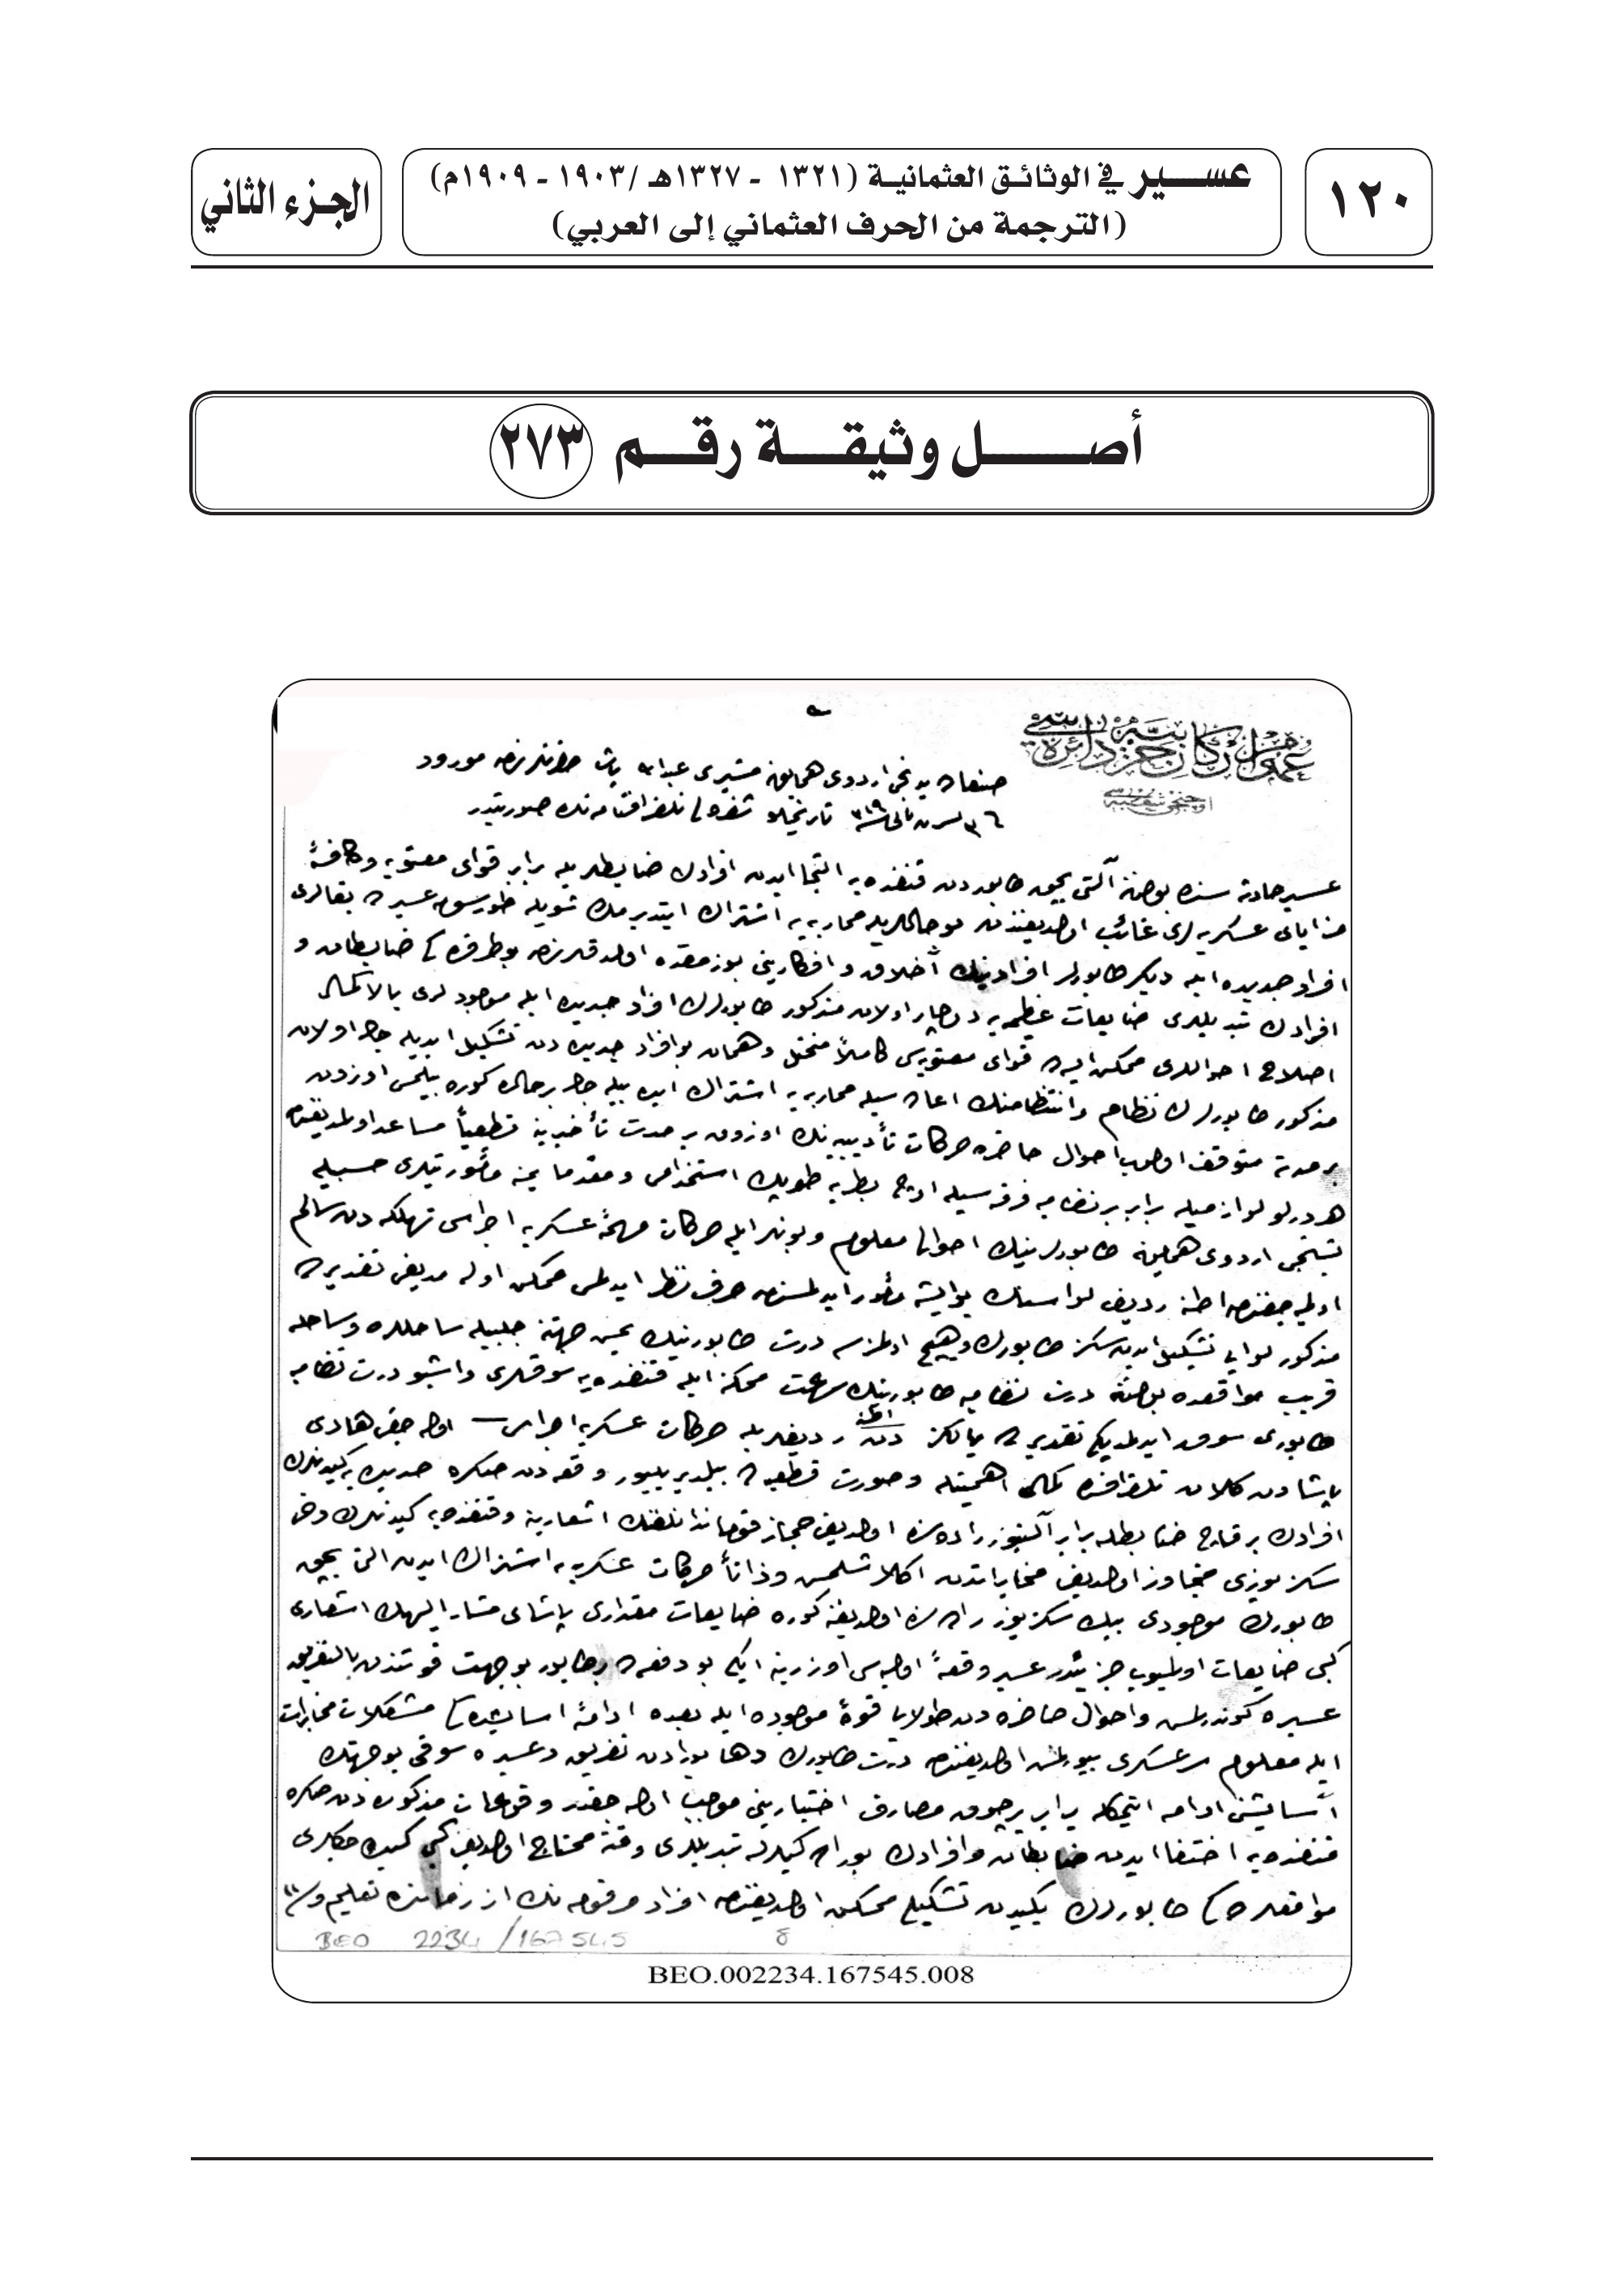 ١٢٠
عسير في الوثائق العثمانية (١٣٢١ - ١٣٢٧هـ /١٩٠٣ - ١٩٠٩م)
(الترجمة من الحرف العثماني إلى العربي)
الجزء الثاني
أصل وثيقة رقم ٢٧٣
عموم اركان حربيه دائره سى
اوچنجى شعبه سى
صنعاده يدنجى اردوى همايون مشيرى عبدالله پاشا حضرتلرندن مورود
تاريخلو شفره لى تلغرافنامه نك صورتيدر
عسير حادثه سنده بولنان آلتى بچق طابوردن قنفذه يه التجا ايدن افرادك ضابطلريله برابر قواى معنويه وكافهٔ
مزاياى عسكريه لرى غائب اولديغندن بو حاللريله محاربه يه اشتراك ايتديرمك شويله طورسون عسيرده بقالرى
افراد جديده ايله ديكر طابورلر افرادينك اخلاق وافكارينى بوزمقده اولدقلرندن بو طرفده كى ضابطان و
افرادك تبديللرى ضايعات عظيمه يه دوچار اولان مذكور طابورلرك افراد جديده ايله موجودلرى بالاكمال
اصلاح احواللرى ممكن ايسه ده قواى معنويه سى كاملاً مختل وهمان بو افراد جديده دن تشكيل ايديله جك اولان
مذكور طابورلرك نظام وانتظامنك اعاده سيله محاربه يه اشتراك ايده بيله جك بر حاله كوره بيلمسى اوزون
بر مدته متوقف اولوب احوال حاضره حركات تأديبيه نك اوزون بر مدت تأخيرينه قطعياً مساعد اولمديغندن
هر درلو لوازميله برابر بر نظاميه فرقه سيله اوچ بطريه طوپك استخدامى ومقدما يمنه مأمورتيلرى حسبيله
بشنجى اردوى همايون طابورلرينك احوالى معلوم وبونلر ايله حركات مهمهٔ عسكريه اجراسى تهلكه دن سالم
اوله ميه جغندن اطنه رديف لواسنك بو ايشه مأمور ايدلمسندن صرف نظر ايدلمسى ممكن اوله مديغى تقديرده
مذكور لوايى تشكيل ايدن سكز طابورك وهيچ اولمزسه درت طابورينك يمن جهتنه جلبيله ساحللرده وساحله
قريب مواقعده بولنان درت نظاميه طابورينك سرعت ممكنه ايله قنفذه يه سوقلرى واشبو درت نظاميه
طابورى سوق ايدلمديكى تقديرده يالكز اطنه رديفلريله حركات عسكريه اجراسى اوله جغى هادى
پاشادن كلان تلغرافده كمال اهميتله وصورت قطعيه ده بيلديريليور وقعه دن صكره حديده يه كيدنلرك
افرادك بر قاچ ضابطله برابر آلتيوز راده سنده اولديغى حجاز قومانداننلغنك اشعارينه وقنفذه يه كيدنلرك دخى
سكز يوزى متجاوز اولديغى مخابراتدن اكلاشلمسى وذاتاً حركات عسكريه يه اشتراك ايدن التى بچق
طابورك موجودى بيك سكز يوز راده سنده اولديغنه كوره ضايعات مقدارى پاشاى مشار اليهك اشعارى
كبى ضايعات اولميوب جزئيدر عسير وقعهٔ اولمسى اوزرينه ايكى بو دفعه ده بر طابور بو جهت قوتندن بالتفريق
عسيره كوندرلمسى واحوال حاضره دن طولايى قوهٔ موجوده ايله بعده ادامهٔ اسايشده كى مشكلات مخابرات
ايله معلوم سرعسكرى بيورلمش اولديغندن درت طابورك دها بورادن تفريق وعسيره سوقى بو جهتك
آسايشنى ادامه ايتمكله برابر برچوق مصارف اختيارينى موجب اوله جغندن وقوعات مذكوره دن صكره
قنفذه يه اختفا ايدن ضابطان وافرادك بورايه كلديكنده تبديللرى وقته محتاج اولديغى كبى
مواقعده كى طابورلرك يكيدن تشكيلى ممكن اولديغندن افراد مرقومه نك از زمانده تعليم و
BEO 2234/167545
8
BEO.002234.167545.008